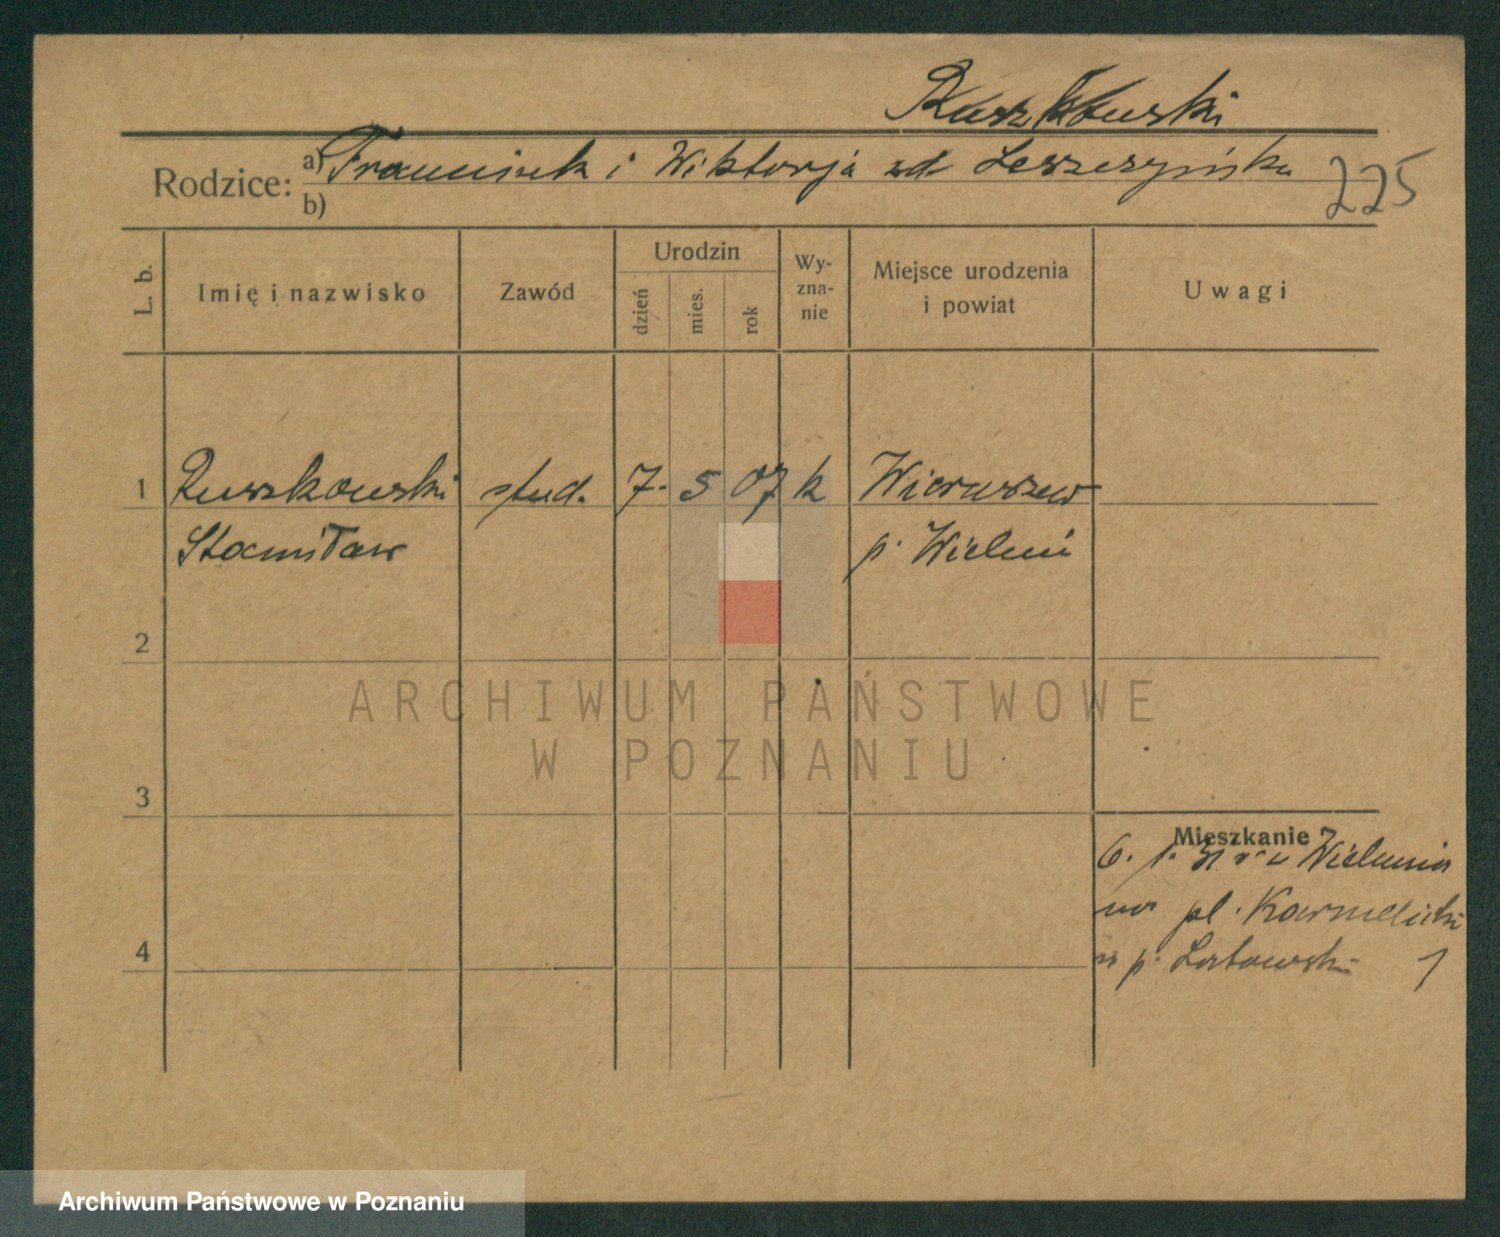 Ruszkowski
Rodzice: a) Franciszek i Wiktorja zd Leszczyńska
b)
225
L. b.
Imię i nazwisko
Zawód
Urodzin
dzień
mies.
rok
Wy-
zna-
nie
Miejsce urodzenia
i powiat
Uwagi
1 Ruszkowski stud. 7. 5 07 k Wieruszew
Stanisław p. Wieluń
2
ARCHIWUM PAŃSTWOWE
W POZNANIU
3
Mieszkanie
6. Wielunia
na pl. Karmelicki
p. 1
4
Archiwum Państwowe w Poznaniu